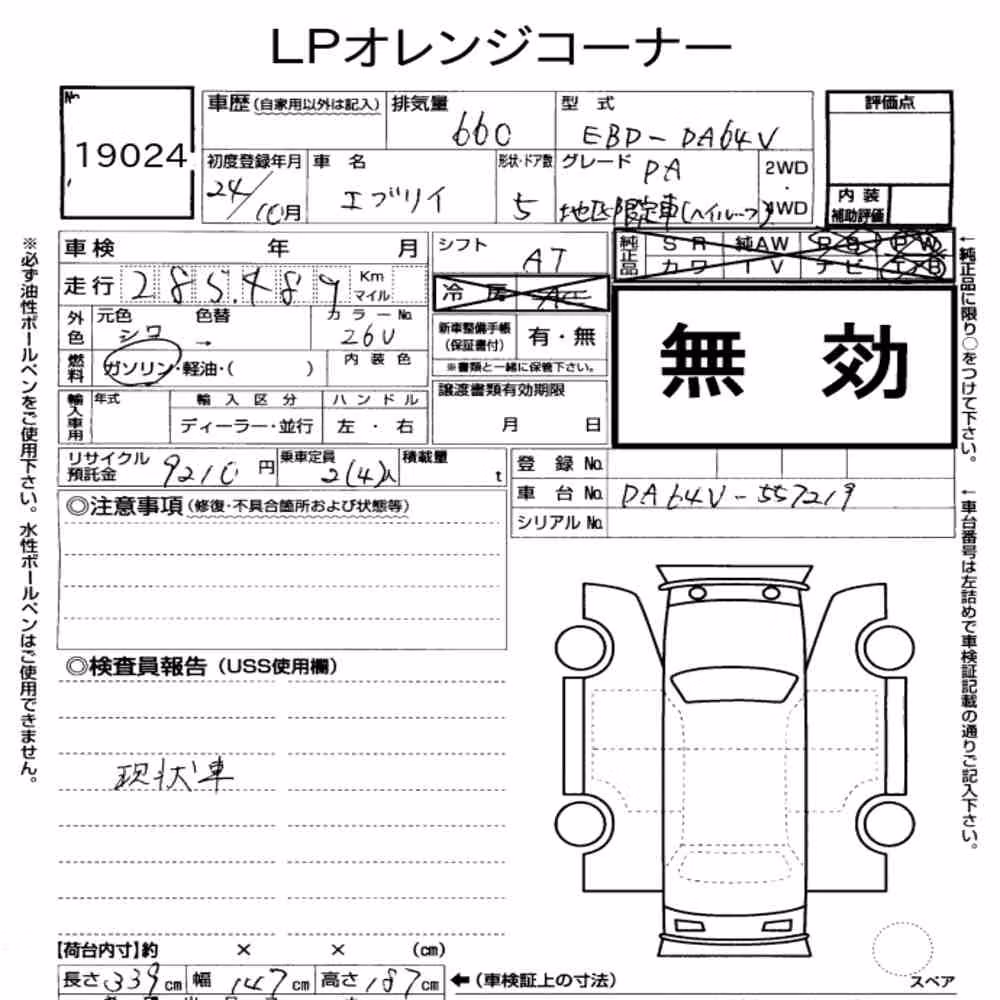 LPオレンジコーナー
No.
19024
車歴(自家用以外は記入)
排気量
660
型 式
EBD-DA64V
評価点
初度登録年月
24/10月
車 名
エブリイ
形状・ドア数
5
グレード
PA
地区限定車(ハイルーフ)
2WD
・
4WD
内 装
補助評価
車検 年 月
シフト
AT
純正品
SR 純AW PS PW
カワ TV ナビ エアB
走行 285,489 Km
マイル
冷 房 A/C
外色
元色
シロ
色替
→
カラーNo.
26U
新車整備手帳
(保証書付)
有・無
※書類と一緒に保管下さい。
無 効
燃料
ガソリン・軽油・( )
内 装 色
譲渡書類有効期限
月 日
輸入車用
年式
輸 入 区 分
ディーラー・並行
ハ ン ド ル
左 ・ 右
リサイクル
預託金
9210 円
乗車定員
2(4)人
積載量
t
登 録 No.
車 台 No. DA64V-557219
シリアルNo.
◎注意事項(修復・不具合箇所および状態等)
◎検査員報告(USS使用欄)
現状車
【荷台内寸】約 × × (cm)
長さ 339 cm 幅 147 cm 高さ 187 cm
←(車検証上の寸法)
スペア
※必ず油性ボールペンをご使用下さい。水性ボールペンはご使用できません。
←純正品に限り○をつけて下さい。
←車台番号は左詰めで車検証記載の通りご記入下さい。